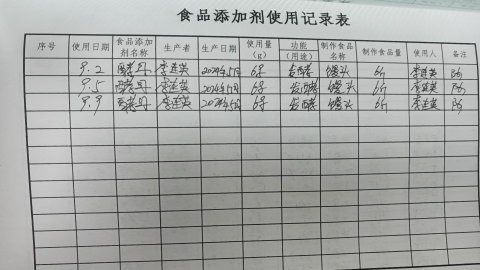 食品添加剂使用记录表
序号 使用日期 食品添加剂名称 生产者 生产日期 使用量(g) 功能(用途) 制作食品名称 制作食品量 使用人 备注
9.2 酵母 李莲英 2024年5月 6 发酵 馒头 6斤 李莲英
9.5 酵母 李莲英 2024年 6 发酵 馒头 6斤 李莲英
9.9 酵母 李莲英 2024年 6 发酵 馒头 6斤 李莲英